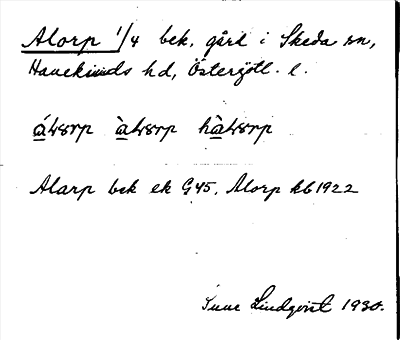 Alorp 1/4 bek. gård i Skeda sn,
Hanekinds hd, Östergötl. l.
Alarp bek ek G45, Alorp kb 1922
Sune Lindqvist 1930.